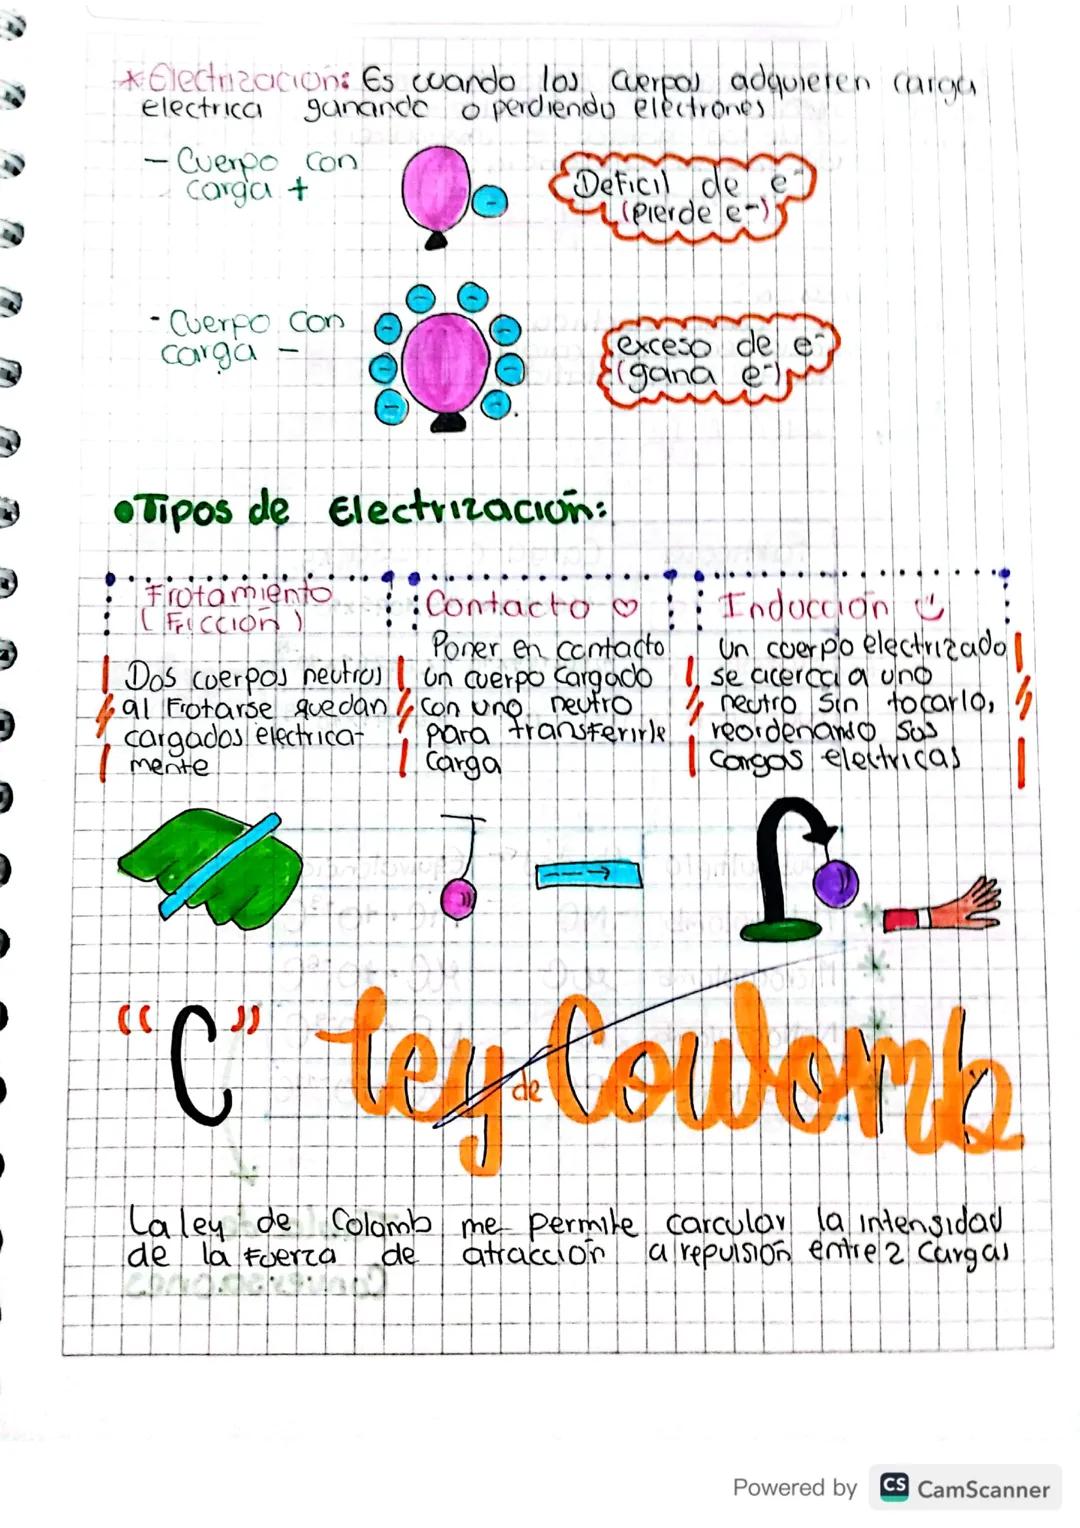 *Electrización: Es cuando los cuerpos adquieren carga
electrica ganando o perdiendo electrones
- Cuerpo con
carga +
-
Deficil de e-
(pierde e-)
- Cuerpo con
carga -
- - - - - - - -
exceso de e-
(gana e-)
•Tipos de Electrización:
Frotamiento
(Fricción)
Dos cuerpos neutros
al Frotarse quedan
cargados electrica-
mente
Contacto ♡
Poner en contacto
un cuerpo cargado
con uno neutro
para transferirle
carga
Inducción
Un cuerpo electrizado
se acerca a uno
neutro sin tocarlo,
reordenando sus
cargas electricas
"C" Ley de Coulomb
La ley de Colomb me permite carcular la intensidad
de la Fuerza de atracción a repulsión entre 2 cargas
Powered by CS CamScanner